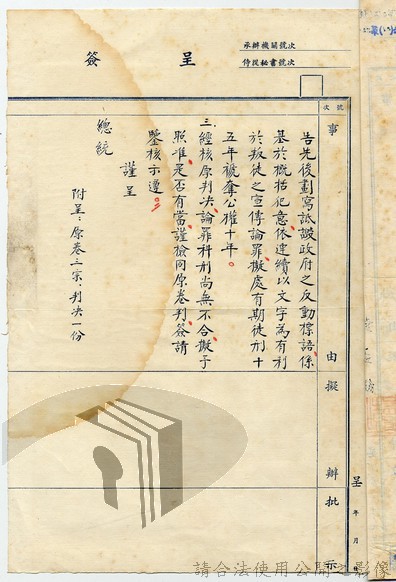 簽呈
承辦機關號次
侍從秘書號次
號次
事由
擬辦
批示
告先後劃寫詆譭政府之反動標語係
基於概括犯意依連續以文字為有利
於叛徒之宣傳論罪擬處有期徒刑十
五年褫奪公權十年。
三、經核原判決論罪科刑尚無不合擬予
照准是否有當謹檢同原卷判簽請
鑒核示遵。
謹呈
總統
附呈：原卷三宗、判決一份
呈
年
月
請合法使用公開之影像